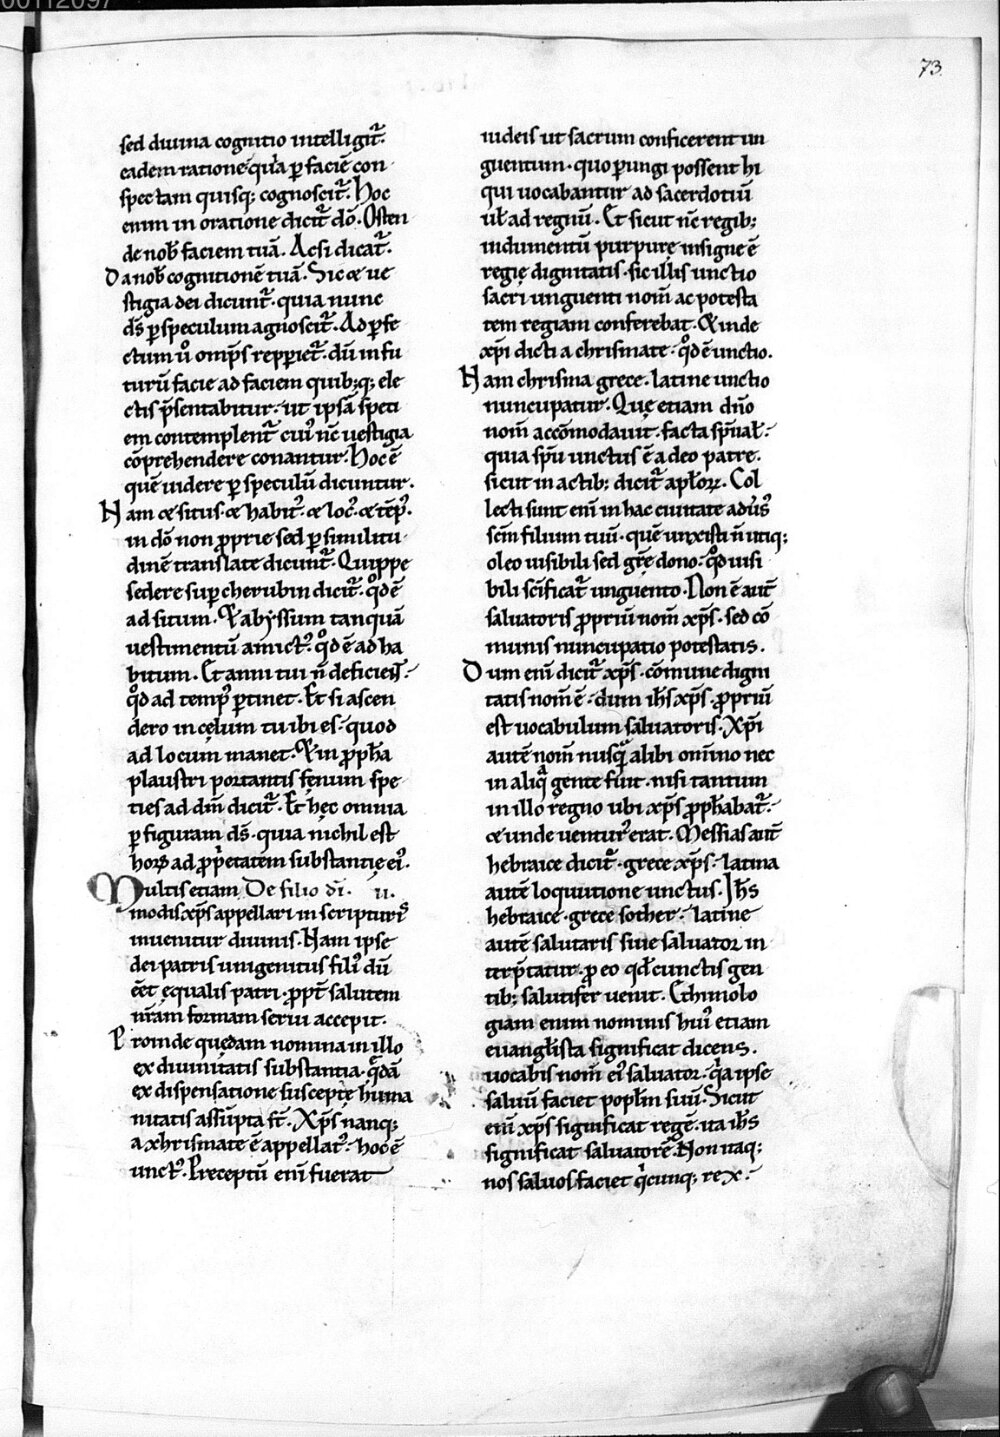 73
sed diuina cognitio intelligit᷑.
eadem ratione qua ꝑ faciē con
spectam quisq; cognoscit᷑. Hoc
enim in oratione dicit᷑ dō. Osten
de nob̄ faciem tuā. Acsi dicat᷑.
Da nob̄ cognitionē tuā. Sic & ue
stigia dei dicunt᷑. quia nunc
dS̄ ꝑ speculum agnoscit᷑. Ad ꝑfe
ctum ū omp̄s repperiet᷑. dū in fu
turū facie ad faciem quib;q; ele
ctis p̄sentabitur. ut ipsā speci
em contemplent᷑ cui᷒ nc̄ uestigia
cōprehendere conantur. Hoc ē
quē uidere ꝑ speculū dicuntur.
Nam & situs & habit᷒ & loc᷒ & tēp᷒.
in dō non ꝓprie sed ꝑ similitu
dinē translate dicunt᷑. Quippe
sedere sup cherubin dicit᷑. qd̄ ē
ad situm. & abyssum tanquā
uestimentū amict᷒. qd̄ ē ad ha
bitum. Et anni tui n̄ deficient.
qd̄ ad temp᷒ ꝑtinet. Et si ascen
dero in cęlum tu ibi es. quod
ad locum manet. & in ꝓpħa
plaustri portantis fęnum spe
ties ad dm̄ dicit᷑. Et hęc omnia
ꝑ figuram ds̄. quia nichil est
horꝝ ad ꝓprietatem substantię ei᷒.
Multis etiam De filio dī. ii.
modis xp̄s appellari in scripturis
inuenitur diuinis. Nam ipse
dei patris unigenitus fili᷒ dū
eēt ęqualis patri. ꝓpt̄ salutem
nr̄am formam serui accepit.
Proinde quędam nomina in illo
ex diuinitatis substantia. qdā
ex dispensatione susceptę huma
nitatis assūpta st̄. Xp̄s nanq;
a xhrismate ē appellat᷒. hoc ē
unct᷒. Preceptū enī fuerat
iudeis ut sacrum conficerent un
guentum. quo ꝑungi possent hi
qui uocabantur ad sacerdotiū
ut̄ ad regnū. Et sicut nc̄ regib;
indumentū purpurę insigne ē
regię dignitatis. sic illis unctio
sacri unguenti nom̄ ac potesta
tem regiam conferebat. & inde
xp̄i dicti a chrismate. qd̄ ē unctio.
Nam chrisma grece. latine unctio
nuncupatur. Quę etiam dn̄o
nom̄ accōmodauit. facta spn̄al̄.
quia spū unctus ē a deo patre.
sicut in actib; dicit᷑ apl̄oꝝ. Col
lecti sunt enī in hac ciuitate adūs᷒
scm̄ filium tuū. quē unxisti n̄ utiq;
oleo uisibili sed grē dono. qd̄ uisi
bili scīficat᷑ unguento. Non ē aut̄
saluatoris ꝓpriū nom̄ xp̄s. sed cō
munis nuncupatio potestatis.
Dum enī dicit᷑ xp̄s. cōmune digni
tatis nom̄ ē. dum ih̄s xp̄s. ꝓpriū
est uocabulum saluatoris. Xp̄i
autē nom̄ nusqā alibi omīno nec
in aliqa gente fuit. nisi tantum
in illo regno ubi xp̄s ꝓph̄abat᷑.
& unde ventur᷒ erat. Messias aut̄
hebraice dicit᷑. grece xp̄s. latina
autē loquutione unctus. Ih̄s
hebraice. grece sother. latine
autē salutaris siue saluator in
terp̄tatur. ꝓ eo qd̄ cunctis gen
tib; salutifer uenit. Ethimolo
giam enim nominis hui᷒ etiam
euangl̄ista significat dicens.
uocabis nom̄ ei᷒ saluator. qa ipse
saluū faciet popl̄m suū. Sicut
enī xp̄s significat regē. ita ih̄s
significat saluatorē. Non itaq;
nos saluos faciet qicunq; rex.